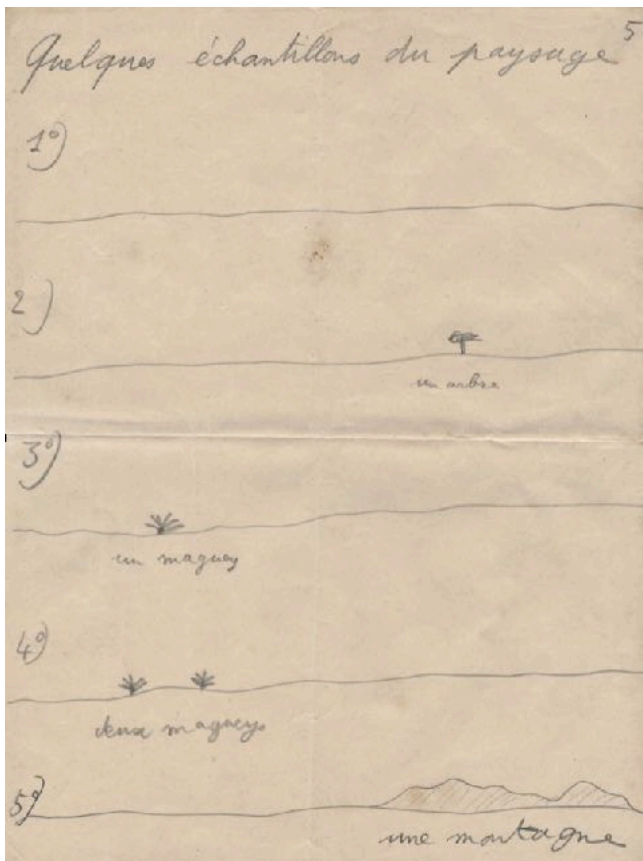 5
Quelques échantillons du paysage
1º)
2)
un arbre
3º)
un maguey
4º)
deux magueys
5º)
une montagne